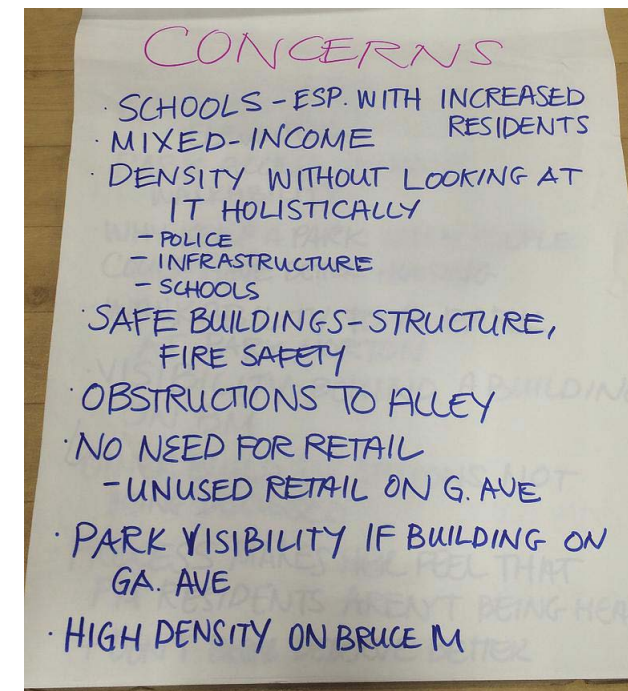 CONCERNS
· SCHOOLS - ESP. WITH INCREASED
RESIDENTS
· MIXED-INCOME
· DENSITY WITHOUT LOOKING AT
IT HOLISTICALLY
- POLICE
- INFRASTRUCTURE
- SCHOOLS
· SAFE BUILDINGS - STRUCTURE,
FIRE SAFETY
· OBSTRUCTIONS TO ALLEY
· NO NEED FOR RETAIL
- UNUSED RETAIL ON G. AVE
· PARK VISIBILITY IF BUILDING ON
GA. AVE
· HIGH DENSITY ON BRUCE M